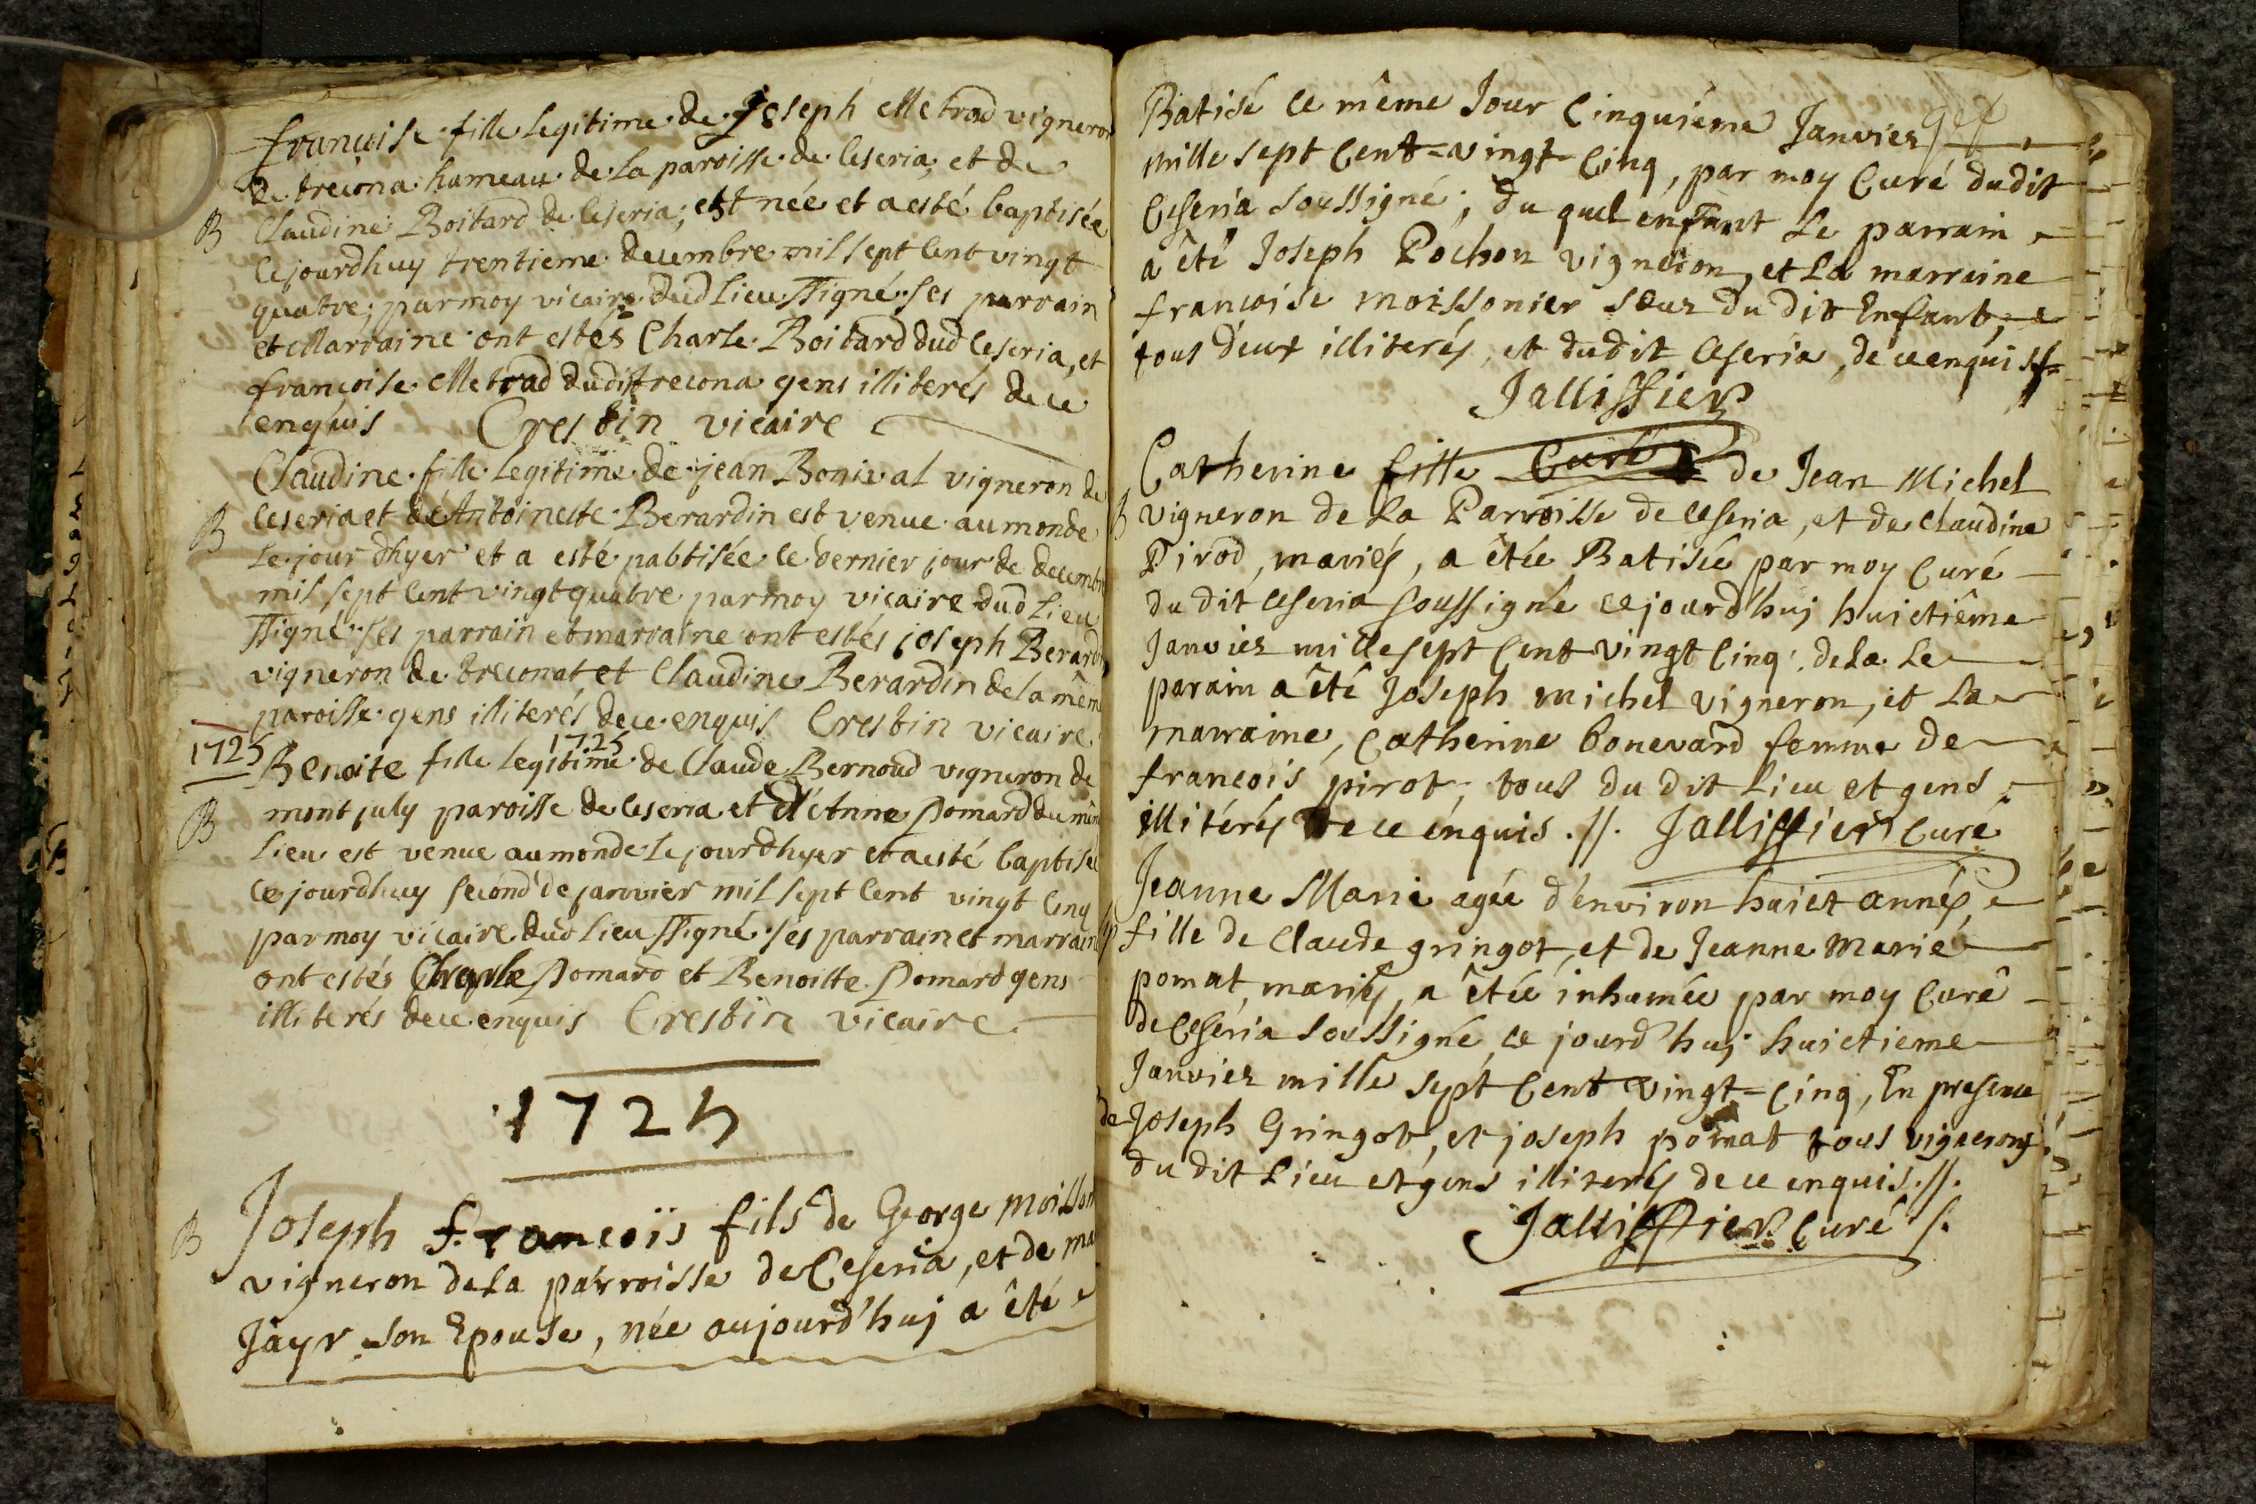 françoise fille legitime de Joseph Metrad vigneron
de treçona hameau de la paroisse de Ceseria, et de
B
Claudine Boitard de Ceseria; est née et a esté baptisée
cejourdhuy trentieme decembre mil sept cent vingt
quatre; par moy vicaire dud lieu ssigné ses parrain
et Marraine ont estés Charle Boitard dud Ceseria, et
françoise Metrad dudit trecona gens illiterés de ce
enquis Crestin vicaire
Claudine fille legitime de jean Bonival vigneron de
B
Ceseria et de Antoineste Berardin est venue au monde
le jour dhyer et a esté pabtisée le dernier jour de decembre
mil sept cent vingt quatre par moy vicaire dud lieu
ssigné ses parrain et marraine ont estés joseph Berardin
vigneron de treconat et Claudine Berardin de la mème
paroisse gens illiterés de ce enquis Crestin vicaire
1725
1725
Benoite fille legitime de Claude Bernoud vigneron de
B
mont july paroisse de Ceseria et d'Anne Pomard du mème
lieu est venue au monde le jour dhyer et a esté baptisée
cejourdhuy second de janvier mil sept cent vingt cinq
par moy vicaire dud lieu ssigné ses parrain et marraine
ont estés Charle Pomard et Benoitte Pomard gens
illiterés de ce enquis Crestin vicaire
1725
B
Joseph françoïs fils de George moisson
vigneron de la parroisse de Ceseria, et de ma
Jayr son Epouse, née aujourd'huj a êté
Batisé ce même Jour Cinquiéme Janvier
mille sept Cent=vingt Cinq, par moy Curé dudit
Ceseria soussigné; du quel enfant le parrain
a êté Joseph Pochon vigneron, et La marraine
françoise moissonier sœur du dit Enfant,
tous deux illiterés, et dudit Ceseria, de ce enquis
Jallissier
Curé
Catherine fille de Jean Michel
B
vigneron de la Parroisse de Ceseria, et de Claudine
Pirod, mariés, a êtée Batisée par moy Curé
du dit Ceseria soussigné cejourd'huj huictiême
Janvier mille sept Cent vingt Cinq. de la Le
parain a êté Joseph Michel vigneron, et La
marraine, Catherine bonevard femme de
françois pirot, tous du dit Lieu et gens
illitérés de ce énquis .//. Jallissier Curé
Jeanne Marie agée d'environ huict années,
fille de Claude gringot, et de Jeanne Marie
pomat, mariés, a êtée inhumée par moy Curê
de Ceséria soussigné, ce jourd'huj huictieme
Janvier mille sept Cent vingt=Cinq, En presence
de Joseph Gringot, et joseph pomat tous vignerons
du dit Lieu et gens illiterés de ce enquis.//.
Jallissier Curé /.